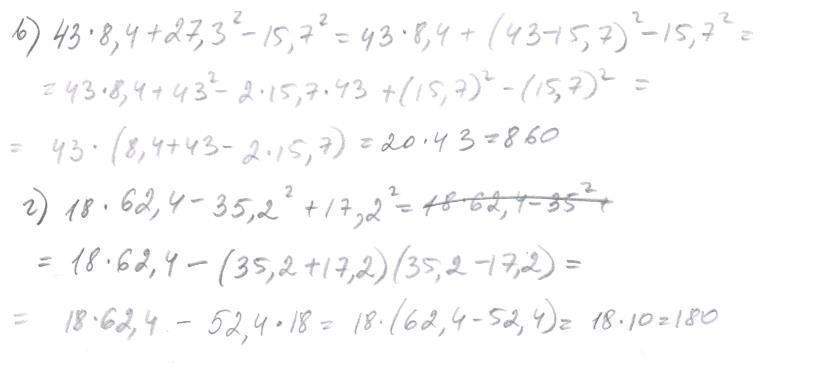 в) 43·8,4+27,3²-15,7²=43·8,4+(43-15,7)²-15,7²=
=43·8,4+43²-2·15,7·43+(15,7)²-(15,7)²=
=43·(8,4+43-2·15,7)=20·43=860
г) 18·62,4-35,2²+17,2²=18·62,4-35²+
=18·62,4-(35,2+17,2)(35,2-17,2)=
=18·62,4-52,4·18=18·(62,4-52,4)=18·10=180